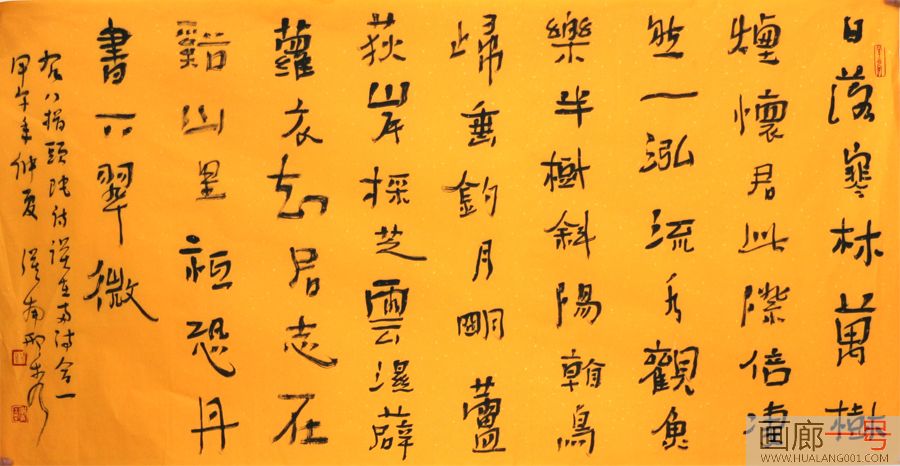 日落寒林萬樹
煙懷君此際倍凄
然一泓流水觀魚
樂半樹斜陽翰鳥
歸垂釣月明蘆
荻岸採芝雲濕薜
蘿衣知君志在
谿山里祗恐丹
書下翠微
右八指頭陀詩誤在兩詩合一
甲午年仲夏
画廊一号
WWW.HUALANG001.COM